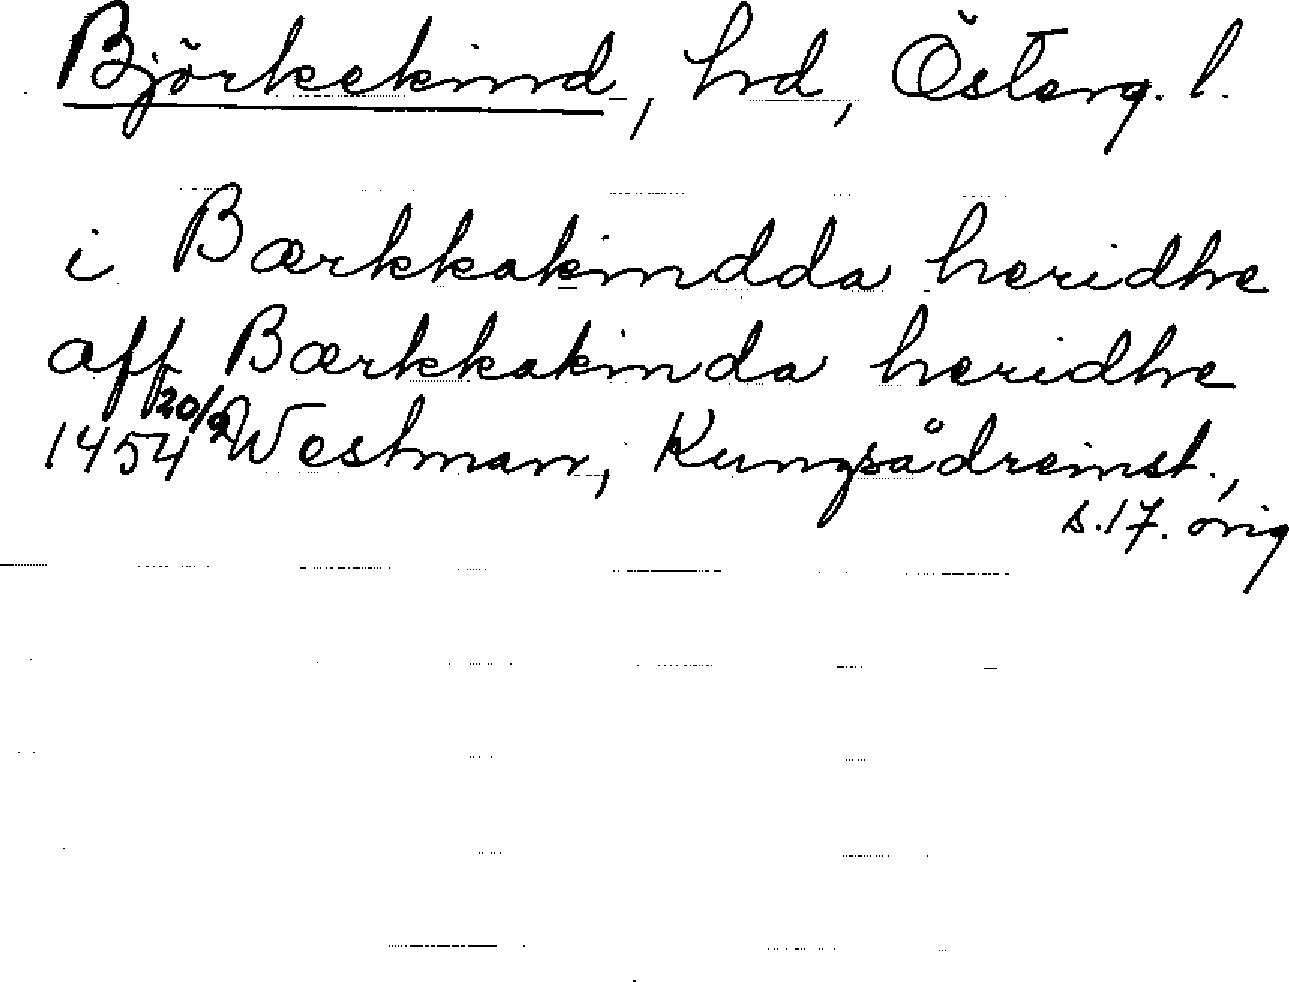 Björkekind, hd, Österg. l.
i Bærkkakindda heridhe
aff Bærkkakinda heridhe
1454 20/9 Westman, Kungsådreinst.,
s. 17. orig